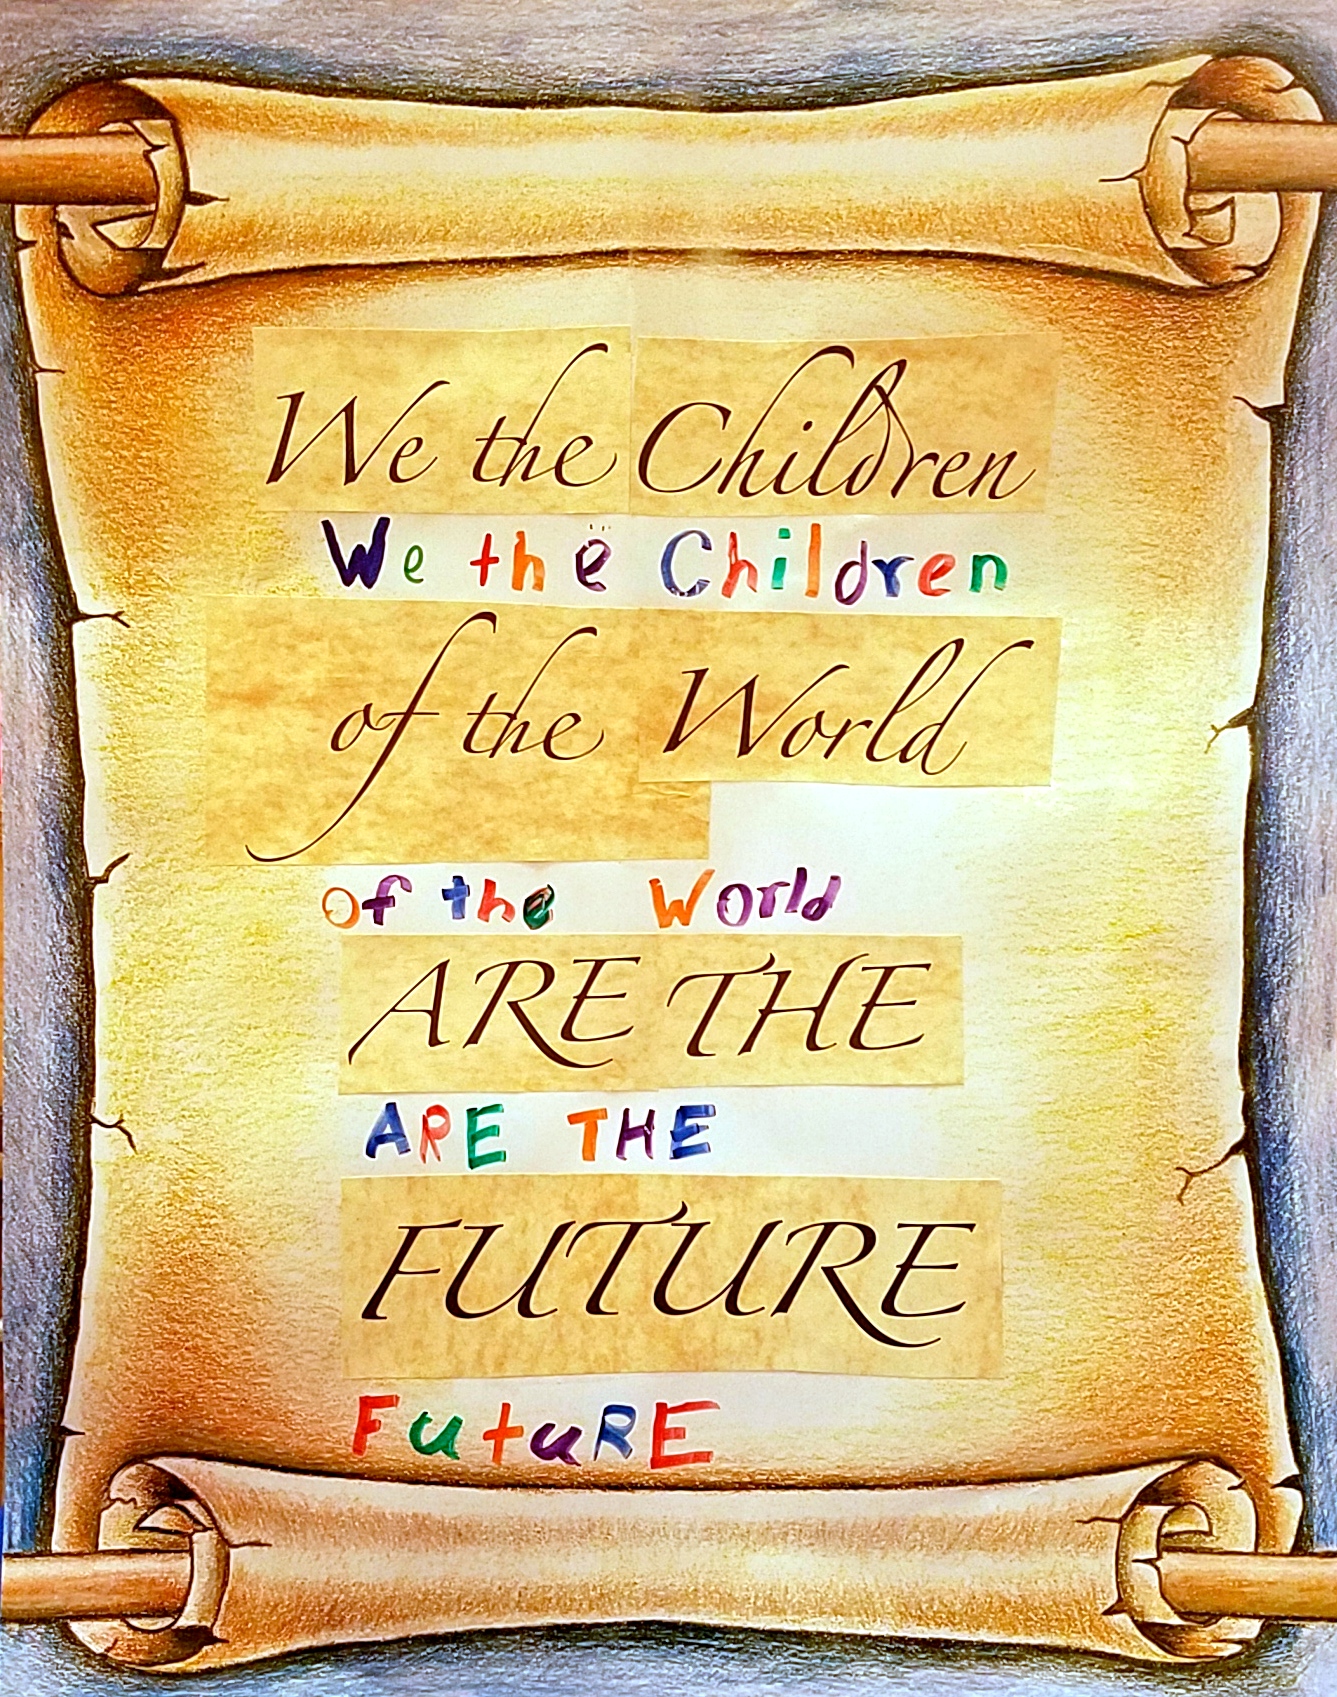 We the Children
We the Children
of the World
of the World
ARE THE
ARE THE
FUTURE
FutuRE